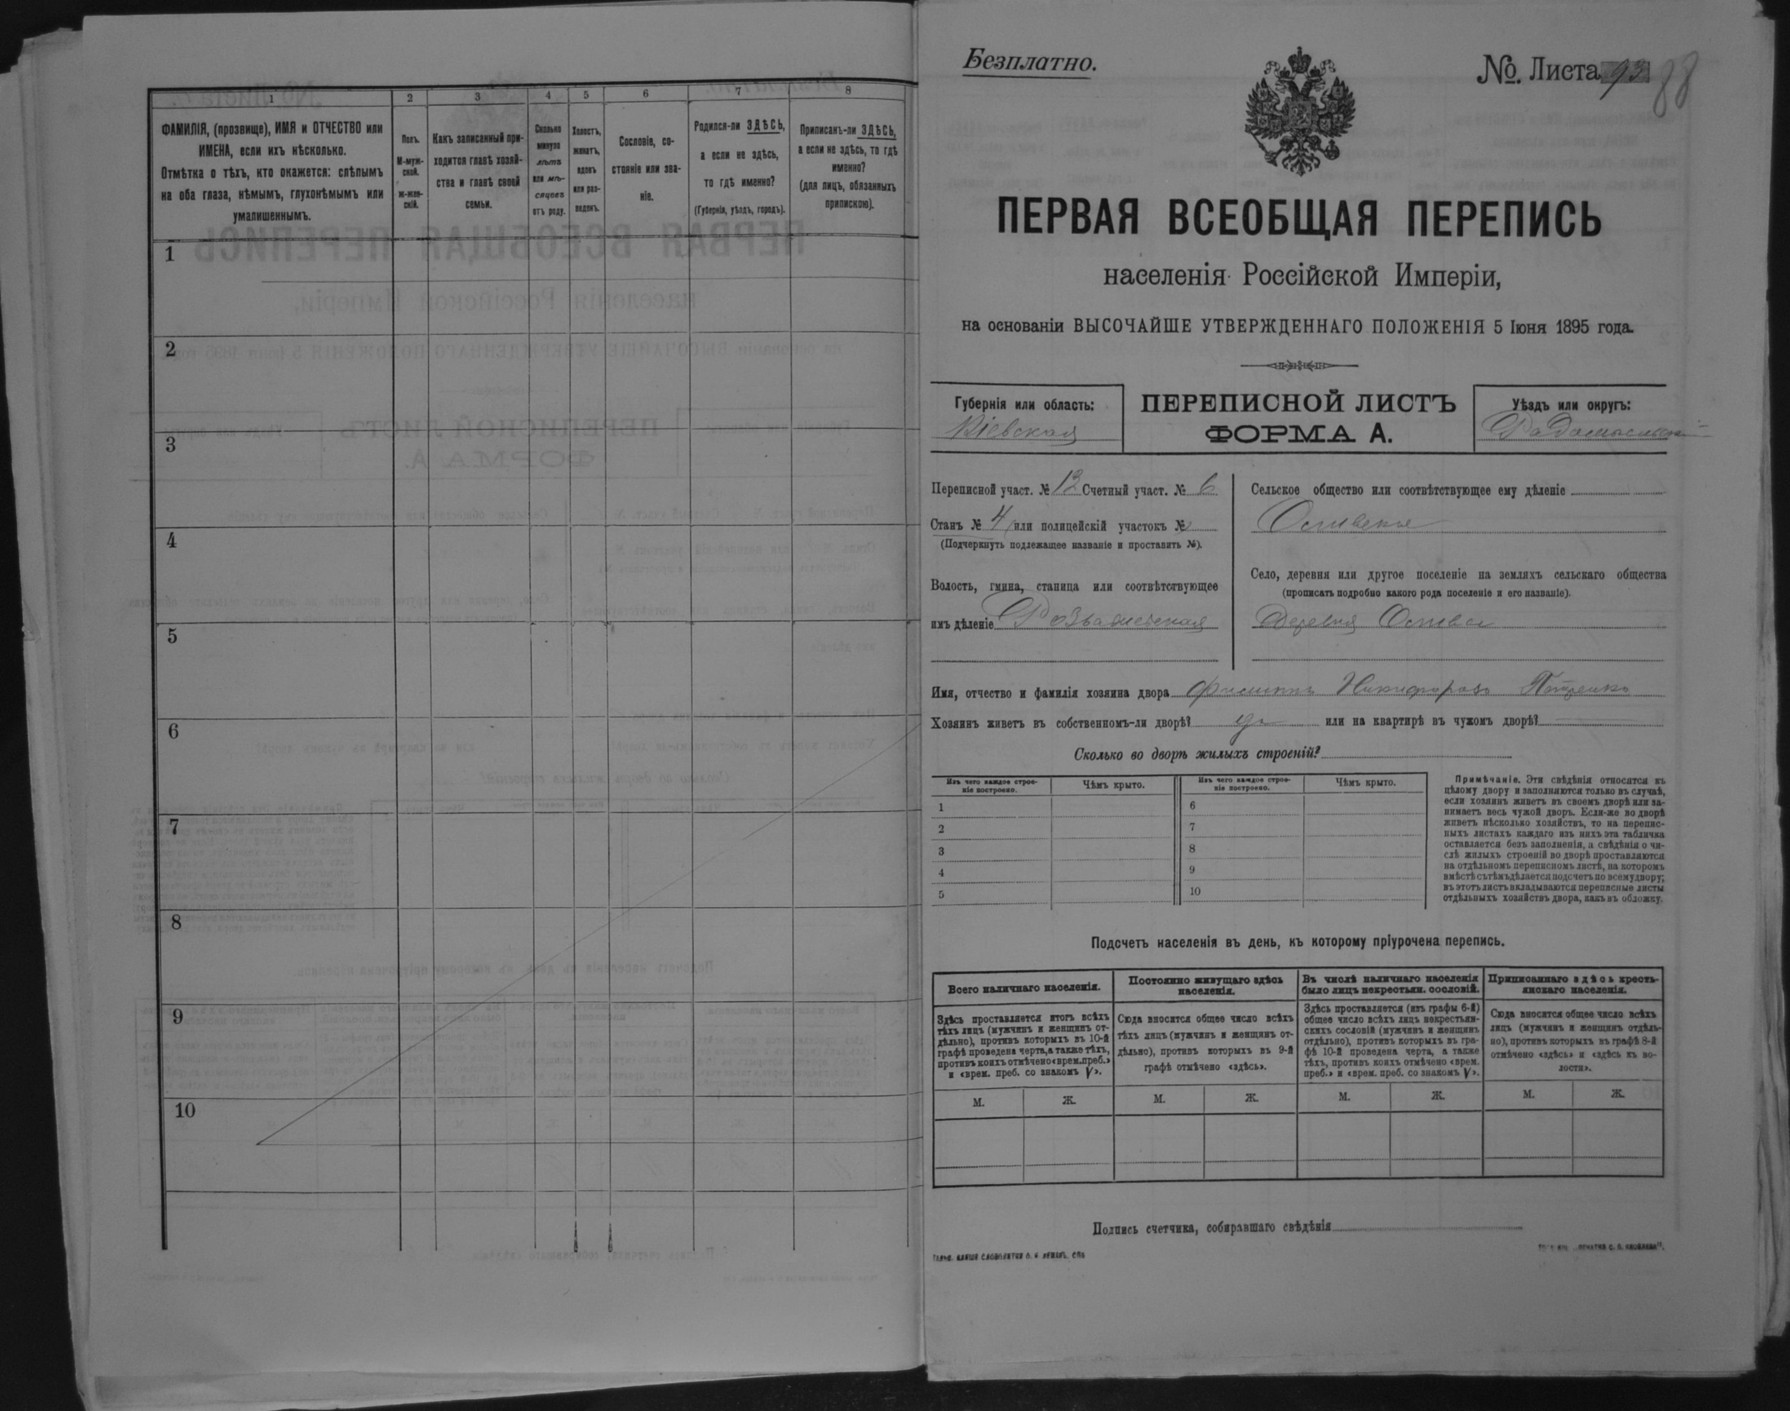 1
2
3
4
5
6
7
8
ФАМИЛІЯ, (прозвище), ИМЯ и ОТЧЕСТВО или
ИМЕНА, если ихъ нѣсколько.
Отмѣтка о тѣхъ, кто окажется: слѣпымъ
на оба глаза, нѣмымъ, глухонѣмымъ или
умалишеннымъ.
Полъ.
М-муж-
ской.
ж-жен-
скій.
Какъ записанный при-
ходится главѣ хозяй-
ства и главѣ своей
семьи.
Сколько
минуло
лѣтъ
или мѣ-
сяцевъ
отъ роду.
Холостъ,
женатъ,
вдовъ
или раз-
веденъ.
Сословіе, со-
стояніе или зва-
ніе.
Родился-ли ЗДѢСЬ,
а если не здѣсь,
то гдѣ именно?
(Губернія, уѣздъ, городъ).
Приписанъ-ли ЗДѢСЬ,
а если не здѣсь, то гдѣ
именно?
(для лицъ, обязанныхъ
припискою).
1
2
3
4
5
6
7
8
9
10
Безплатно.
№. Листа 93 88
ПЕРВАЯ ВСЕОБЩАЯ ПЕРЕПИСЬ
населенія Россійской Имперіи,
на основаніи ВЫСОЧАЙШЕ УТВЕРЖДЕННАГО ПОЛОЖЕНІЯ 5 Іюня 1895 года.
Губернія или область:
Кіевская
ПЕРЕПИСНОЙ ЛИСТЪ
ФОРМА А.
Уѣздъ или округъ:
Переписной участ. № 12 Счетный участ. № 6
Станъ № 4 или полицейскій участокъ №
(Подчеркнуть подлежащее названіе и проставить №).
Волость, гмина, станица или соотвѣтствующее
имъ дѣленіе
Сельское общество или соотвѣтствующее ему дѣленіе
Село, деревня или другое поселеніе на земляхъ сельскаго общества
(прописать подробно какого рода поселеніе и его названіе).
Деревня
Имя, отчество и фамилія хозяина двора Филиппъ Никифоровъ Петренко
Хозяинъ живетъ въ собственномъ-ли дворѣ? да или на квартирѣ въ чужомъ дворѣ?
Сколько во дворѣ жилыхъ строеній?
Изъ чего каждое строе-
ніе построено.
Чѣмъ крыто.
Изъ чего каждое строе-
ніе построено.
Чѣмъ крыто.
1
2
3
4
5
6
7
8
9
10
Примѣчаніе. Эти свѣдѣнія относятся къ
цѣлому двору и заполняются только въ случаѣ,
если хозяинъ живетъ въ своемъ дворѣ или за-
нимаетъ весь чужой дворъ. Если-же во дворѣ
живетъ нѣсколько хозяйствъ, то на перепис-
ныхъ листахъ каждаго изъ нихъ эта табличка
оставляется безъ заполненія, а свѣдѣнія о чи-
слѣ жилыхъ строеній во дворѣ проставляются
на отдѣльномъ переписномъ листѣ, на которомъ
вмѣстѣ съ тѣмъ дѣлается подсчетъ по всему двору;
въ этотъ листъ вкладываются переписные листы
отдѣльныхъ хозяйствъ двора, какъ въ обложку.
Подсчетъ населенія въ день, къ которому пріурочена перепись.
Всего наличнаго населенія.
Здѣсь проставляется итогъ всѣхъ
тѣхъ лицъ (мужчинъ и женщинъ от-
дѣльно), противъ которыхъ въ 10-й
графѣ проведена черта, а также тѣхъ,
противъ коихъ отмѣчено «врем. преб.»
и «врем. преб. со знакомъ V».
Постоянно живущаго здѣсь
населенія.
Сюда вносится общее число всѣхъ
тѣхъ лицъ (мужчинъ и женщинъ от-
дѣльно), противъ которыхъ въ 9-й
графѣ отмѣчено «здѣсь».
Въ числѣ наличнаго населенія
было лицъ некрестьян. сословій.
Здѣсь проставляется (изъ графы 6-й)
общее число всѣхъ лицъ некрестьян-
скихъ сословій (мужчинъ и женщинъ
отдѣльно), противъ которыхъ въ гра-
фѣ 10-й проведена черта, а также
тѣхъ, противъ коихъ отмѣчено «врем.
преб.» и «врем. преб. со знакомъ V».
Приписаннаго здѣсь кресть-
янскаго населенія.
Сюда вносится общее число всѣхъ
лицъ (мужчинъ и женщинъ отдѣль-
но), противъ которыхъ въ графѣ 8-й
отмѣчено «здѣсь» и «здѣсь въ во-
лости».
М. Ж. М. Ж. М. Ж. М. Ж.
Подпись счетчика, собиравшаго свѣдѣнія